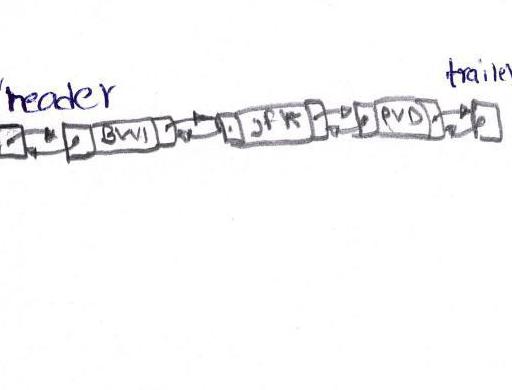 header
trailer
BWI JFK PVD